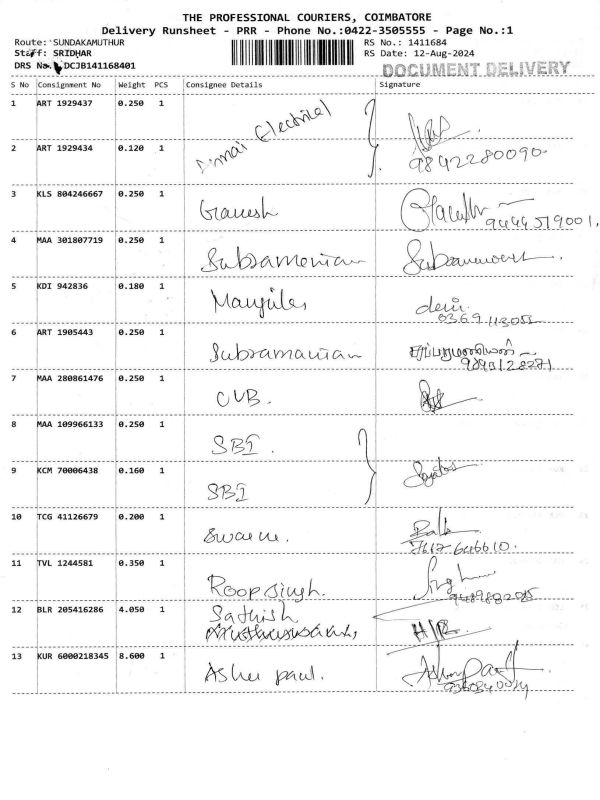 THE PROFESSIONAL COURIERS, COIMBATORE
Delivery Runsheet - PRR - Phone No.:0422-3505555 - Page No.:1
Route: SUNDAKAMUTHUR RS No.: 1411684
Staff: SRIDHAR RS Date: 12-Aug-2024
DRS No. DCJB141168401 DOCUMENT DELIVERY
S No Consignment No Weight PCS Consignee Details Signature
1 ART 1929437 0.250 1 Electrical
2 ART 1929434 0.120 1 9842280090
3 KLS 804246667 0.250 1 Ganesh 9444579001
4 MAA 301807719 0.250 1 Subramanian
5 KDI 942836 0.180 1
6 ART 1905443 0.250 1 Subramanian
7 MAA 280861476 0.250 1 CUB.
8 MAA 109966133 0.250 1 SBI
9 KCM 70006438 0.160 1 SBI
10 TCG 41126679 0.200 1
11 TVL 1244581 0.350 1 Roop Singh. Singh
12 BLR 205416286 4.050 1 Sathish
13 KUR 6000218345 8.600 1 paul.